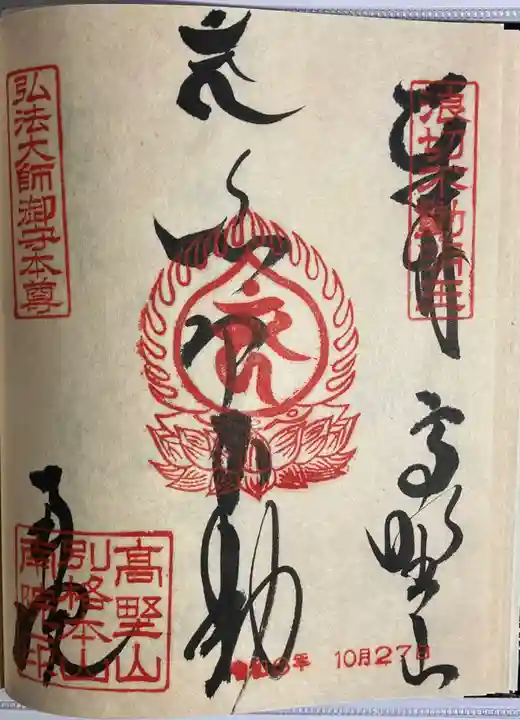 奉拝 高野山
浪切不動明王
浪切不動
弘法大師御守本尊
南院
高野山
別格本山
南院之印
10月27日